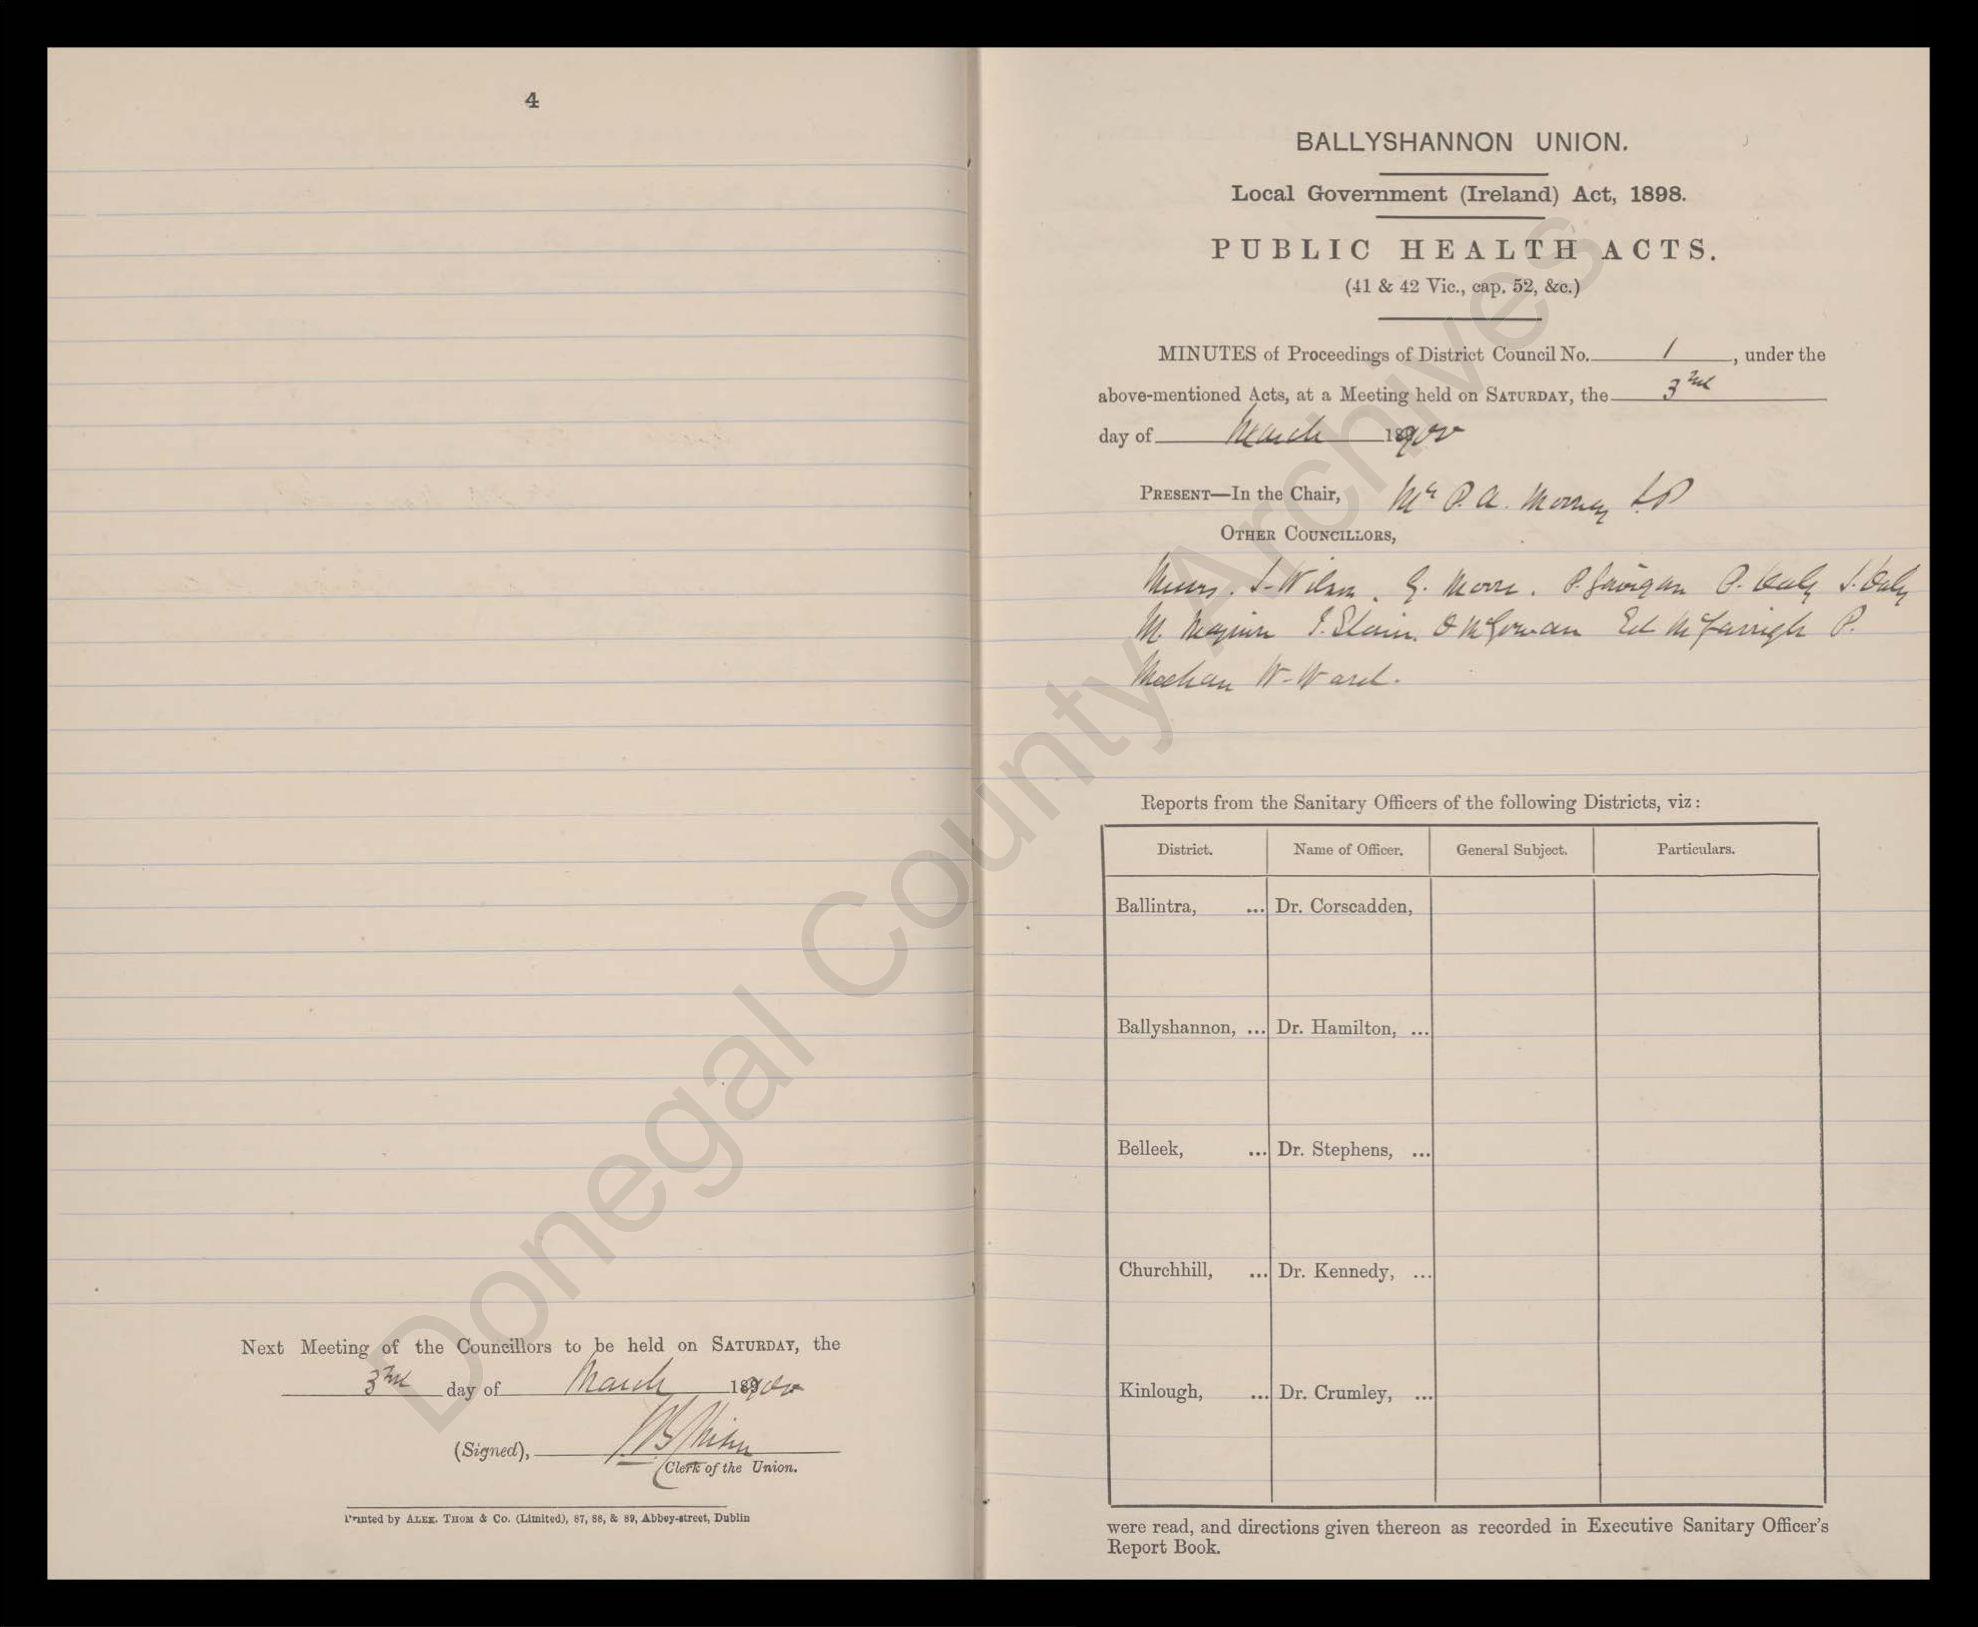 4
Next Meeting of the Councillors to be held on SATURDAY, the
3rd day of March 1900
(Signed),
Clerk of the Union.
Printed by ALEX. THOM & CO. (Limited), 87, 88, & 89, Abbey-street, Dublin
BALLYSHANNON UNION.
Local Government (Ireland) Act, 1898.
PUBLIC HEALTH ACTS.
(41 & 42 Vic., cap. 52, &c.)
MINUTES of Proceedings of District Council No. 1, under the
above-mentioned Acts, at a Meeting held on SATURDAY, the 3rd
day of March 1900
PRESENT—In the Chair, Mr P. A.
OTHER COUNCILLORS,
Messrs. J. Wilson. G. Moore. P. Gavigan P. Daly J. Daly
M. Maguire J. O McGowan Ed McGarrigle P.
Meehan W. Ward.
Reports from the Sanitary Officers of the following Districts, viz:
District. Name of Officer. General Subject. Particulars.
Ballintra, ... Dr. Corscadden,
Ballyshannon, ... Dr. Hamilton, ...
Belleek, ... Dr. Stephens, ...
Churchhill, ... Dr. Kennedy, ...
Kinlough, ... Dr. Crumley, ...
were read, and directions given thereon as recorded in Executive Sanitary Officer's
Report Book.
Donegal County Archives